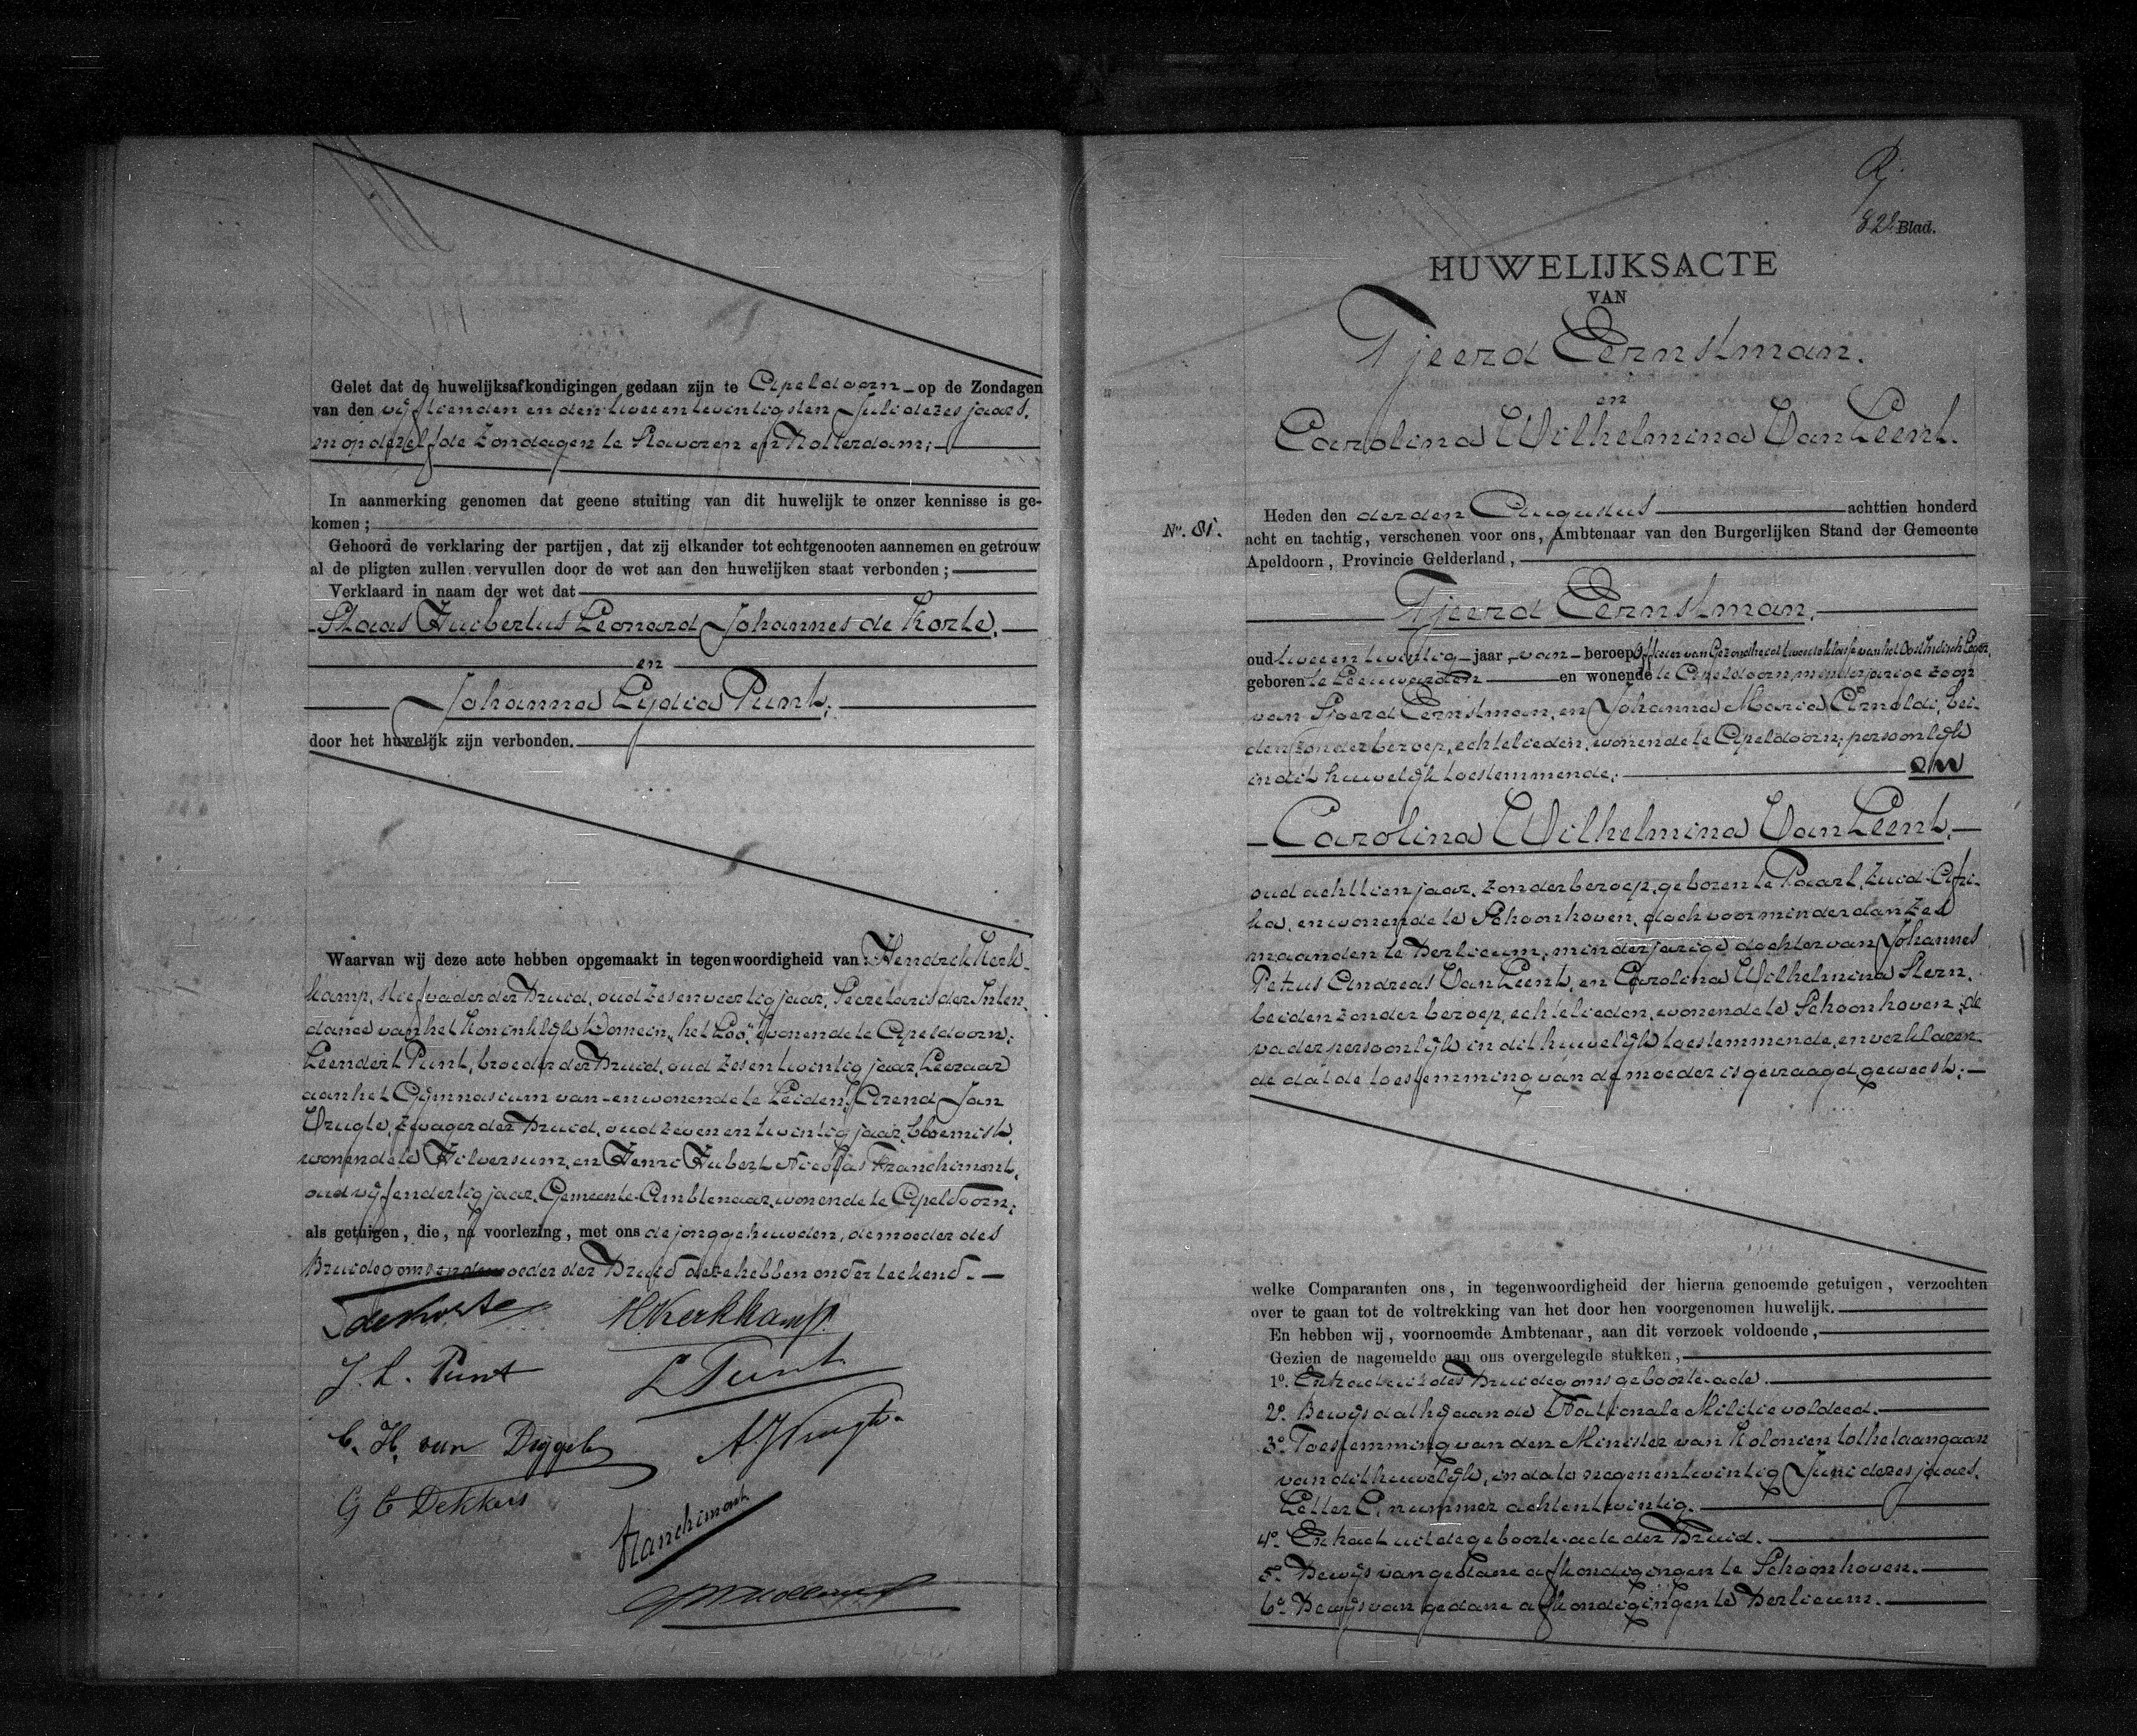 Gelet dat de huwelijksafkondigingen gedaan zijn te Apeldoorn op de Zondagen
van den vijftienden en den tweeentwintigsten Juli dezes jaars.
en op dezelfde Zondagen te Stavoren en Rotterdam;
In aanmerking genomen dat geene stuiting van dit huwelijk te onzer kennisse is ge-
komen;
Gehoord de verklaring der partijen, dat zij elkander tot echtgenooten aannemen en getrouw
al de pligten zullen vervullen door de wet aan den huwelijken staat verbonden;
Verklaard in naam der wet dat
Staas Huibertus Leonard Johannes de Korte,
en
Johanna Lydia Punt,
door het huwelijk zijn verbonden.
Waarvan wij deze acte hebben opgemaakt in tegenwoordigheid van Hendrik Kerk-
kamp, stiefvader der Bruid, oud zesenveertig jaar, Secretaris der Inten-
dance van het Koninklijk Domein, "het Loo", wonende te Apeldoorn;
Leendert Punt, broeder der Bruid, oud zesentwintig jaar, Leeraar
aan het Gymnasium van en wonende te Leiden; Arend Jan
Vrugte, zwager der Bruid, oud zevenentwintig jaar, bloemist,
wonende te Hilversum, en Henri Hubert Nicolas Franchimont,
oud vijfendertig jaar, Gemeente-Ambtenaar, wonende te Apeldoorn;
als getuigen, die, na voorlezing, met ons de jonggehuwden, de moeder des
Bruidegoms en de moeder der Bruid deze hebben onderteekend.
S de Korte H. Kerkkamp
J. L. Punt L Punt
C. H. van Diggelen
G C Dekkers
Franchimont
R
82e Blad.
HUWELIJKSACTE
VAN
Tjeerd Eernstman.
en
Carolina Wilhelmina Van Leent.
No. 81.
Heden den derden Augustus achttien honderd
acht en tachtig, verschenen voor ons, Ambtenaar van den Burgerlijken Stand der Gemeente
Apeldoorn, Provincie Gelderland,
Tjeerd Eernstman,
oud tweeentwintig jaar, van beroep Officier van Gezondheid tweede klasse van het Oost Indisch Leger,
geboren te Leeuwarden en wonende te Apeldoorn, minderjarige zoon
van Sjoerd Eernstman, en Johanna Maria Arnoldi, bei-
den zonder beroep, echtelieden, wonende te Apeldoorn; persoonlijk
in dit huwelijk toestemmende; en
Carolina Wilhelmina Van Leent,
oud achttien jaar, zonder beroep, geboren te Paarl, Zuid-Afri-
ka, en wonende te Schoonhoven, doch voor minder dan zes
maanden te Berlicum, minderjarige dochter van Johannes
Petrus Andreas Van Leent, en Carolina Wilhelmina Stern,
beiden zonder beroep, echtelieden, wonende te Schoonhoven; de
vader persoonlijk in dit huwelijk toestemmende, en verklaren-
de dat de toestemming van de moeder is gevraagd geweest;
welke Comparanten ons, in tegenwoordigheid der hierna genoemde getuigen, verzochten
over te gaan tot de voltrekking van het door hen voorgenomen huwelijk.
En hebben wij, voornoemde Ambtenaar, aan dit verzoek voldoende,
Gezien de nagemelde aan ons overgelegde stukken,
1o. Extract uit des Bruidegoms geboorte-acte.
2o. Bewijs dat hij aan de Nationale Militie voldeed.
3o. Toestemming van den Minister van Kolonien tot het aangaan
van dit huwelijk, in dato negenentwintig Juni dezes jaars,
Letter C, nummer achtentwintig.
4o. Extract uit de geboorte-acte der Bruid.
5o. Bewijs van gedane afkondigingen te Schoonhoven.
6o. Bewijs van gedane afkondigingen te Berlicum.